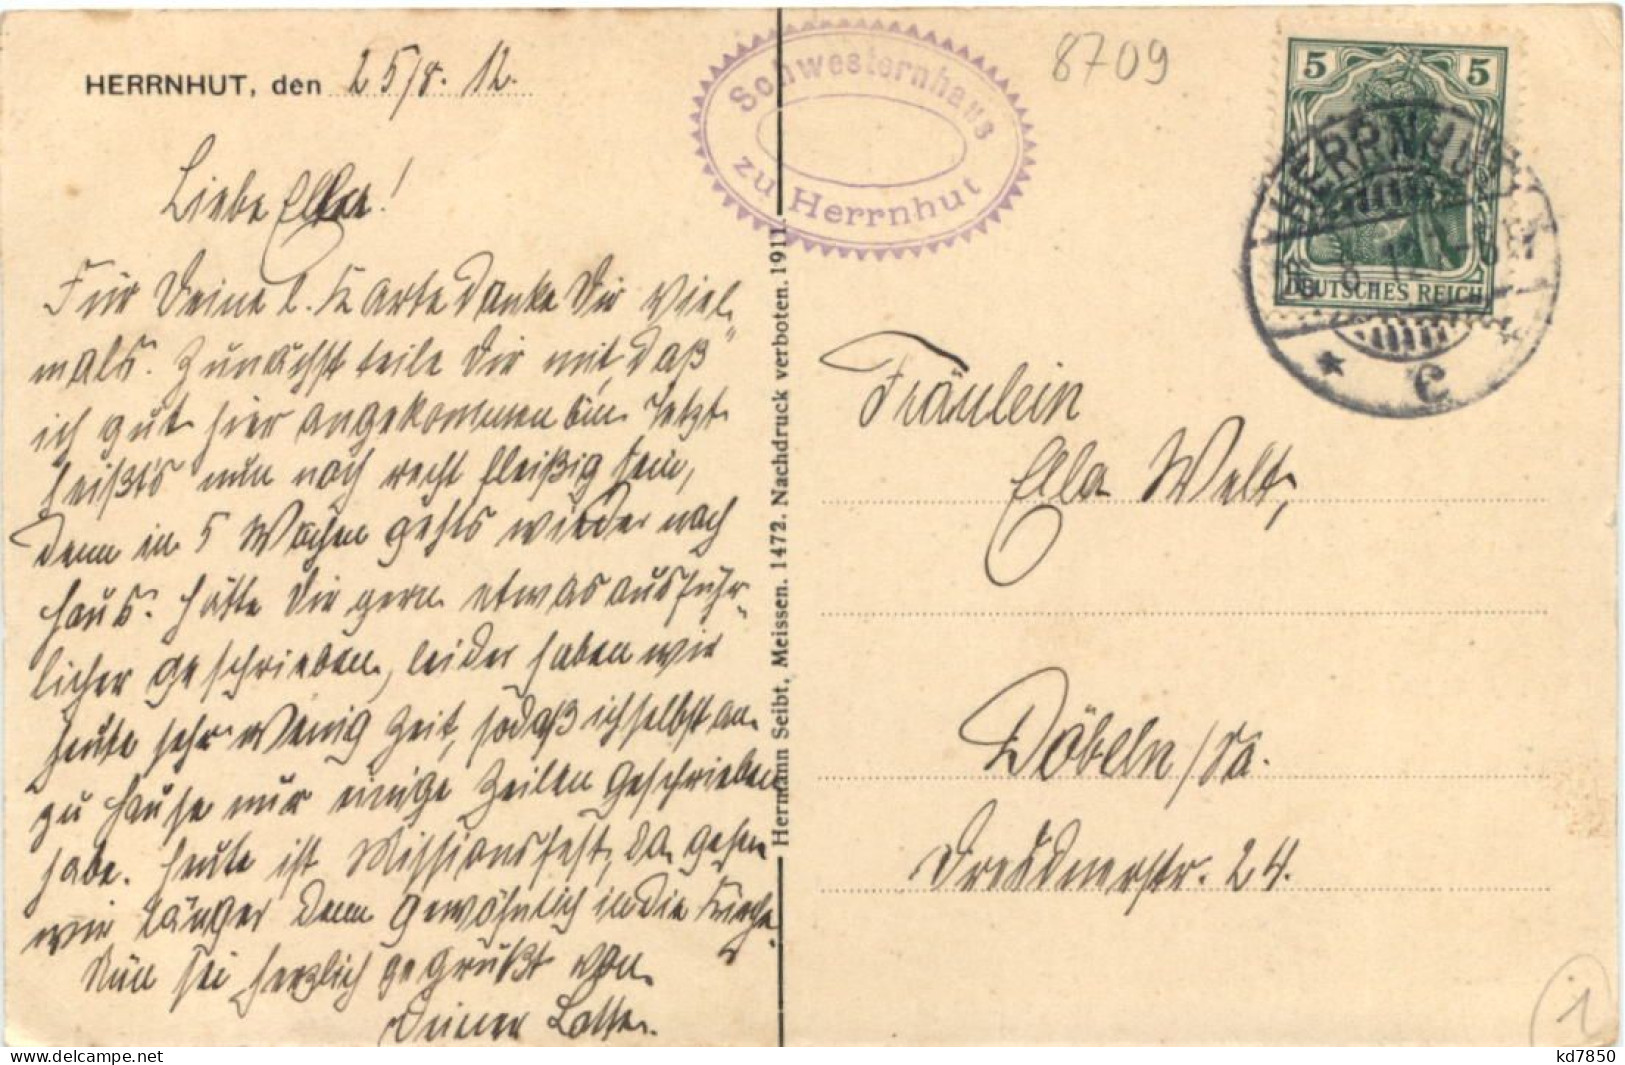 HERRNHUT, den 25/8. 12.
Liebe Ella!
Für Deine l. Karte danke Dir viel-
mals. Zunächst teile Dir mit, daß
ich gut hier angekommen bin. Jetzt
heißt's nun noch recht fleißig sein,
denn in 5 Wochen gehts wieder nach
Haus. Hätte Dir gern etwas ausführ-
licher geschrieben, leider haben wir
heute sehr wenig Zeit, sodaß ich selbst an
zu Hause nur einige Zeilen geschrieben
habe. Heute ist Missionsfest, da gehen
wir länger denn gewöhnlich in die Kirche.
Nun sei herzlich gegrüßt von
Deiner Lotte.
Schwesternhaus
zu Herrnhut
Hermann Seibt, Meissen. 1472. Nachdruck verboten. 1911.
8709
5 5
DEUTSCHES REICH
HERRNHUT
* c *
Fräulein
Ella Welt,
Döbeln/Sa.
Dresdnerstr. 24.
1
kd7850
https://www.ansichtskartenversand.com